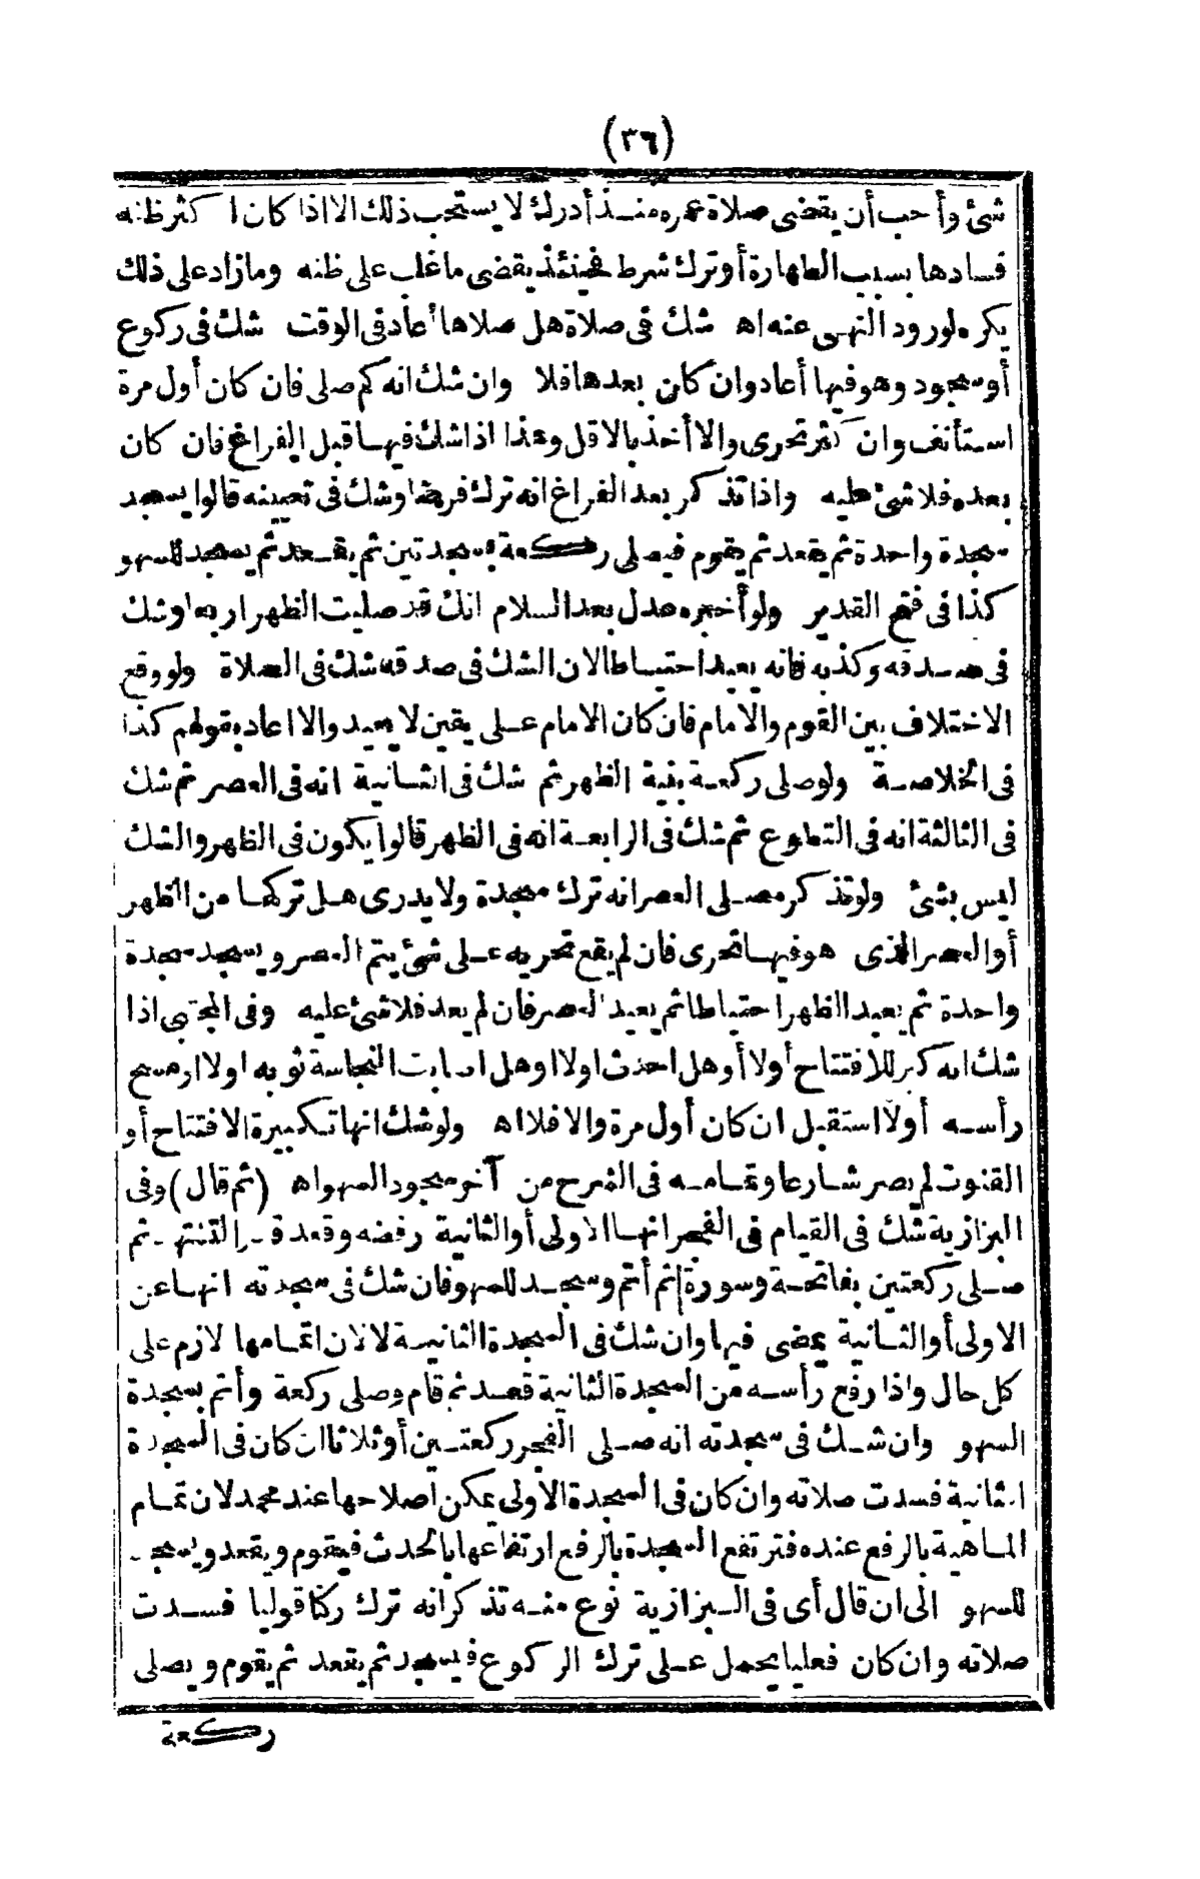 (٣٦)
شئ وأحب أن يقضى صلاة عمره منذ أدرك لا يستحب ذلك الا اذا كان اكثر ظنه
فسادها بسبب الطهارة أو ترك شرط فحينئذ يقضى ما غلب على ظنه وما زاد على ذلك
يكره لورود النهى عنه اه شك فى صلاة هل صلاها أعاد فى الوقت شك فى ركوع
أو سجود وهو فيها أعاد وان كان بعدها فلا وان شك انه كم صلى فان كان أول مرة
استأنف وان كثر تحرى والا أخذ بالاقل وهذا اذا شك فيها قبل الفراغ فان كان
بعده فلا شئ عليه واذا تذكر بعد الفراغ انه ترك فرضا وشك فى تعيينه قالوا يسجد
سجدة واحدة ثم يقعد ثم يقوم فيصلى ركعة بسجدتين ثم يقعد ثم يسجد للسهو
كذا فى فتح القدير ولو أخبره عدل بعد السلام انك قد صليت الظهر اربعا وشك
فى صدقه وكذبه فانه يعيد احتياطا لان الشك فى صدقه شك فى الصلاة ولو وقع
الاختلاف بين القوم والامام فان كان الامام على يقين لا يعيد والا اعاد بقولهم كذا
فى الخلاصة ولو صلى ركعة بنية الظهر ثم شك فى الثانية انه فى العصر ثم شك
فى الثالثة انه فى التطوع ثم شك فى الرابعة انه فى الظهر قالوا يكون فى الظهر والشك
ليس بشئ ولو تذكر مصلى العصر انه ترك سجدة ولا يدرى هل تركها من الظهر
أو العصر الذى هو فيها تحرى فان لم يقع تحريه على شئ يتم العصر ويسجد سجدة
واحدة ثم يعيد الظهر احتياطا ثم يعيد العصر فان لم يعد فلا شئ عليه وفى المجتبى اذا
شك انه كبر للافتتاح أولا أو هل احدث اولا او هل اصابت النجاسة ثوبه اولا او مسح
رأسه أولا استقبل ان كان أول مرة والا فلا اه ولو شك انها تكبيرة الافتتاح أو
القنوت لم يصر شارعا وتمامه فى الشرح من آخر سجود السهو اه (ثم قال) وفى
البزازية شك فى القيام فى الفجر انها الاولى أو الثانية رفضه وقعد قدر التشهد ثم
صلى ركعتين بفاتحة وسورة ثم أتم وسجد للسهو فان شك فى سجدته انها عن
الاولى أو الثانية يمضى فيها وان شك فى السجدة الثانية لا لان اتمامها لازم على
كل حال واذا رفع رأسه من السجدة الثانية قعد ثم قام وصلى ركعة وأتم بسجدة
السهو وان شك فى سجدته انه صلى الفجر ركعتين أو ثلاثا ان كان فى السجدة
الثانية فسدت صلاته وان كان فى السجدة الاولى يمكن اصلاحها عند محمد لان تمام
الماهية بالرفع عنده فترتفع السجدة بالرفع ارتفاعها بالحدث فيقوم ويقعد ويسجد
للسهو الى ان قال أى فى البزازية نوع منه تذكر انه ترك ركنا قوليا فسدت
صلاته وان كان فعليا يحمل على ترك الركوع فيسجد ثم يقعد ثم يقوم ويصلى
ركعة